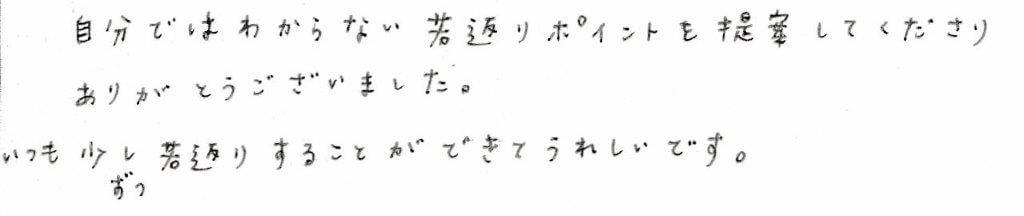 自分ではわからない若返りポイントを提案してくださり
ありがとうございました。
いつも少し若返りすることができてうれしいです。
ずつ